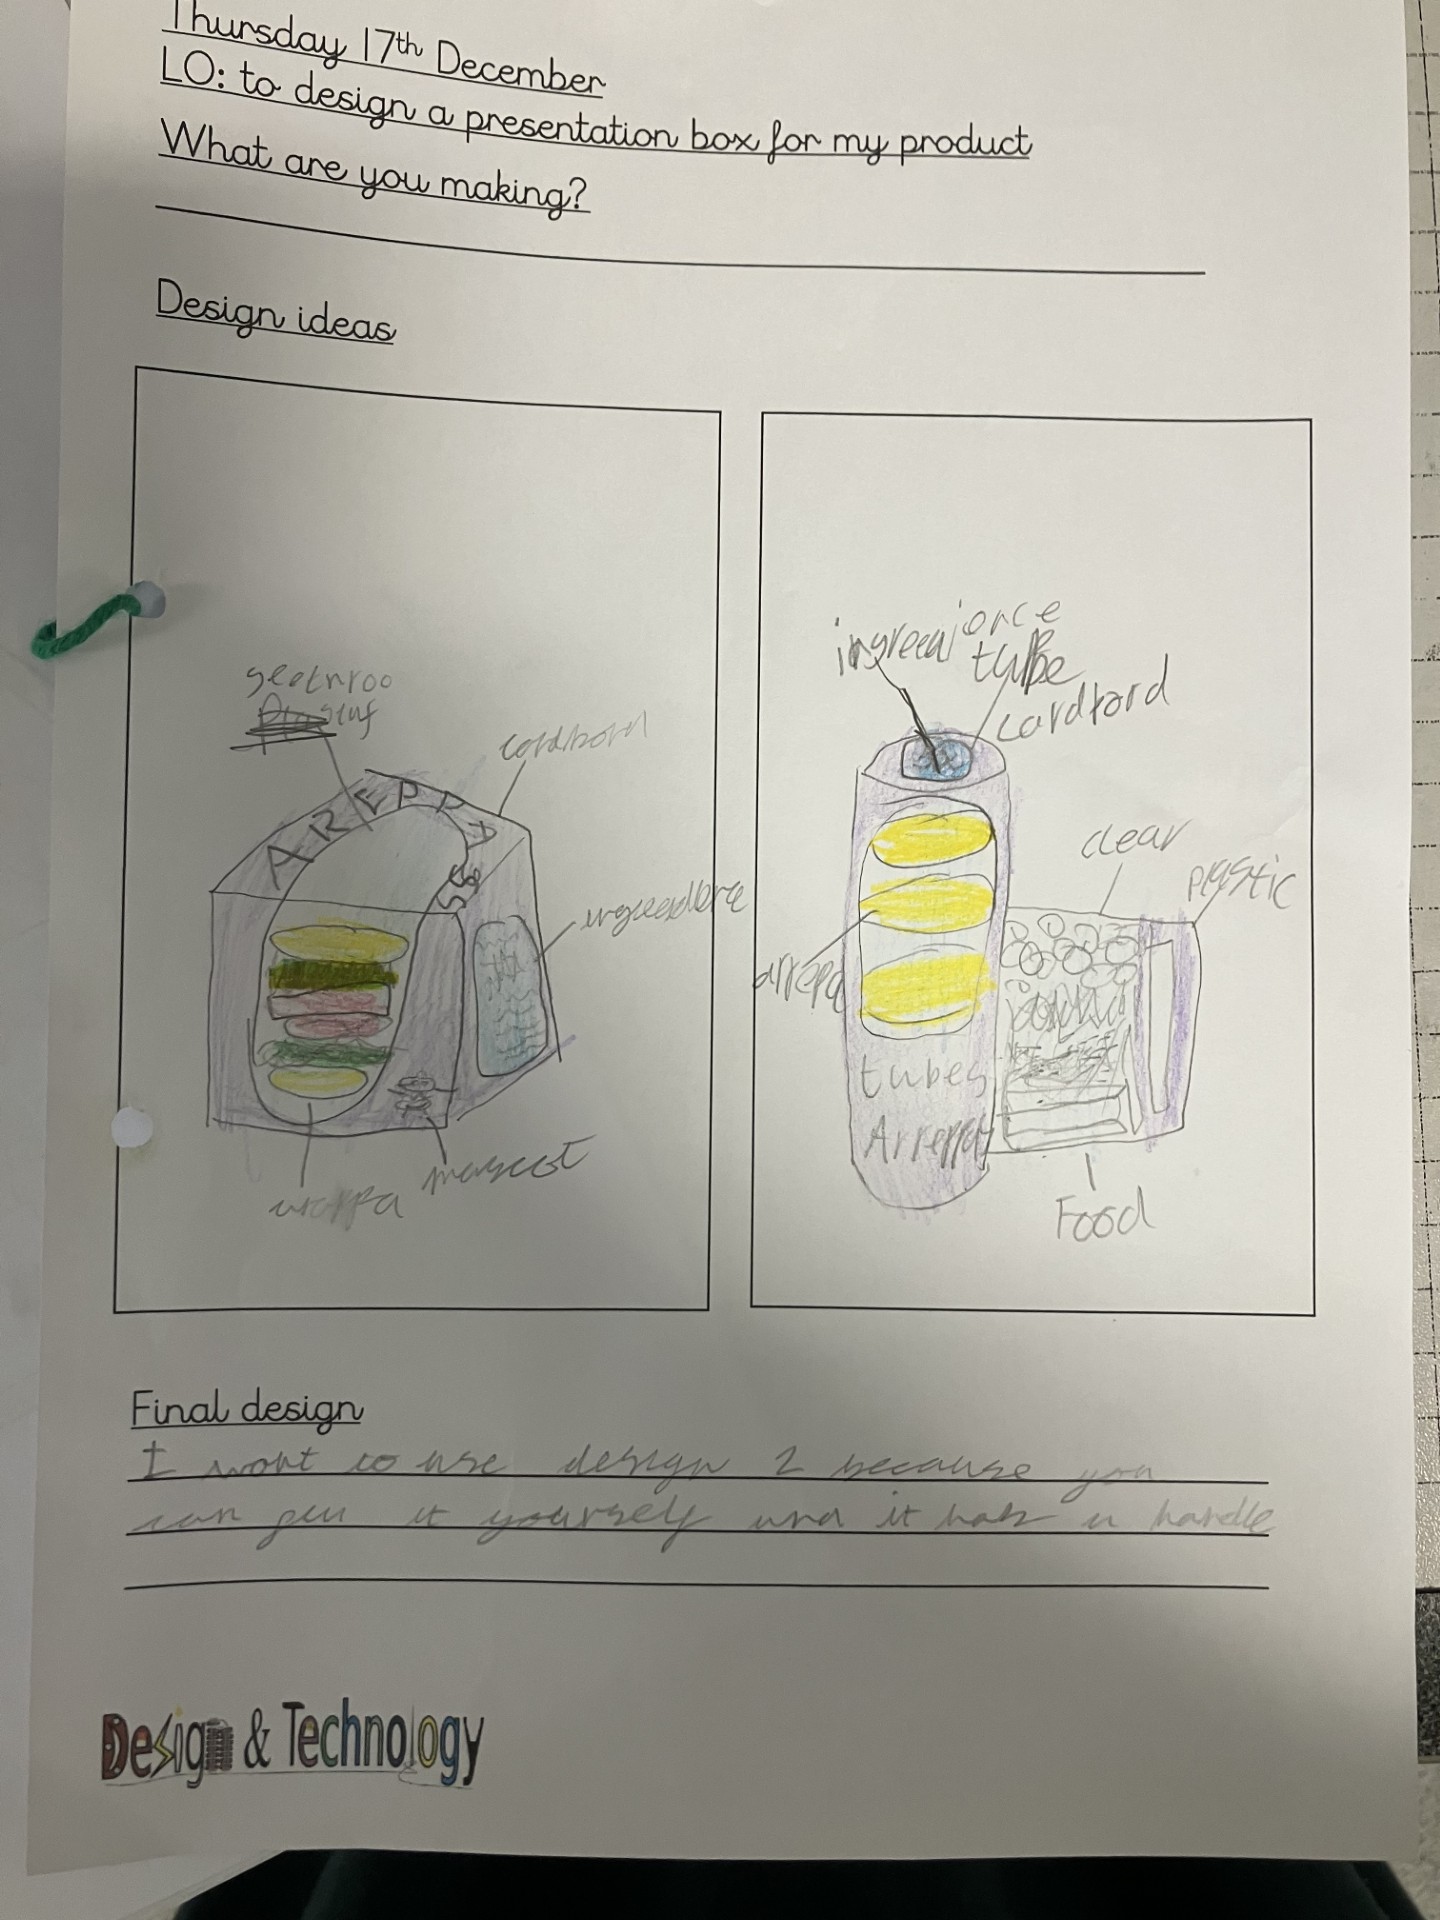 Thursday 17th December
LO: to design a presentation box for my product
What are you making?
Design ideas
stuf
cordbord
AREPPA
mascot
ingreedience
tube
cardford
clear
plastic
arrepa
tubes
Arreppa
Food
Final design
I want to use design 2 because you
can it yourself and it has a handle
Design & Technology